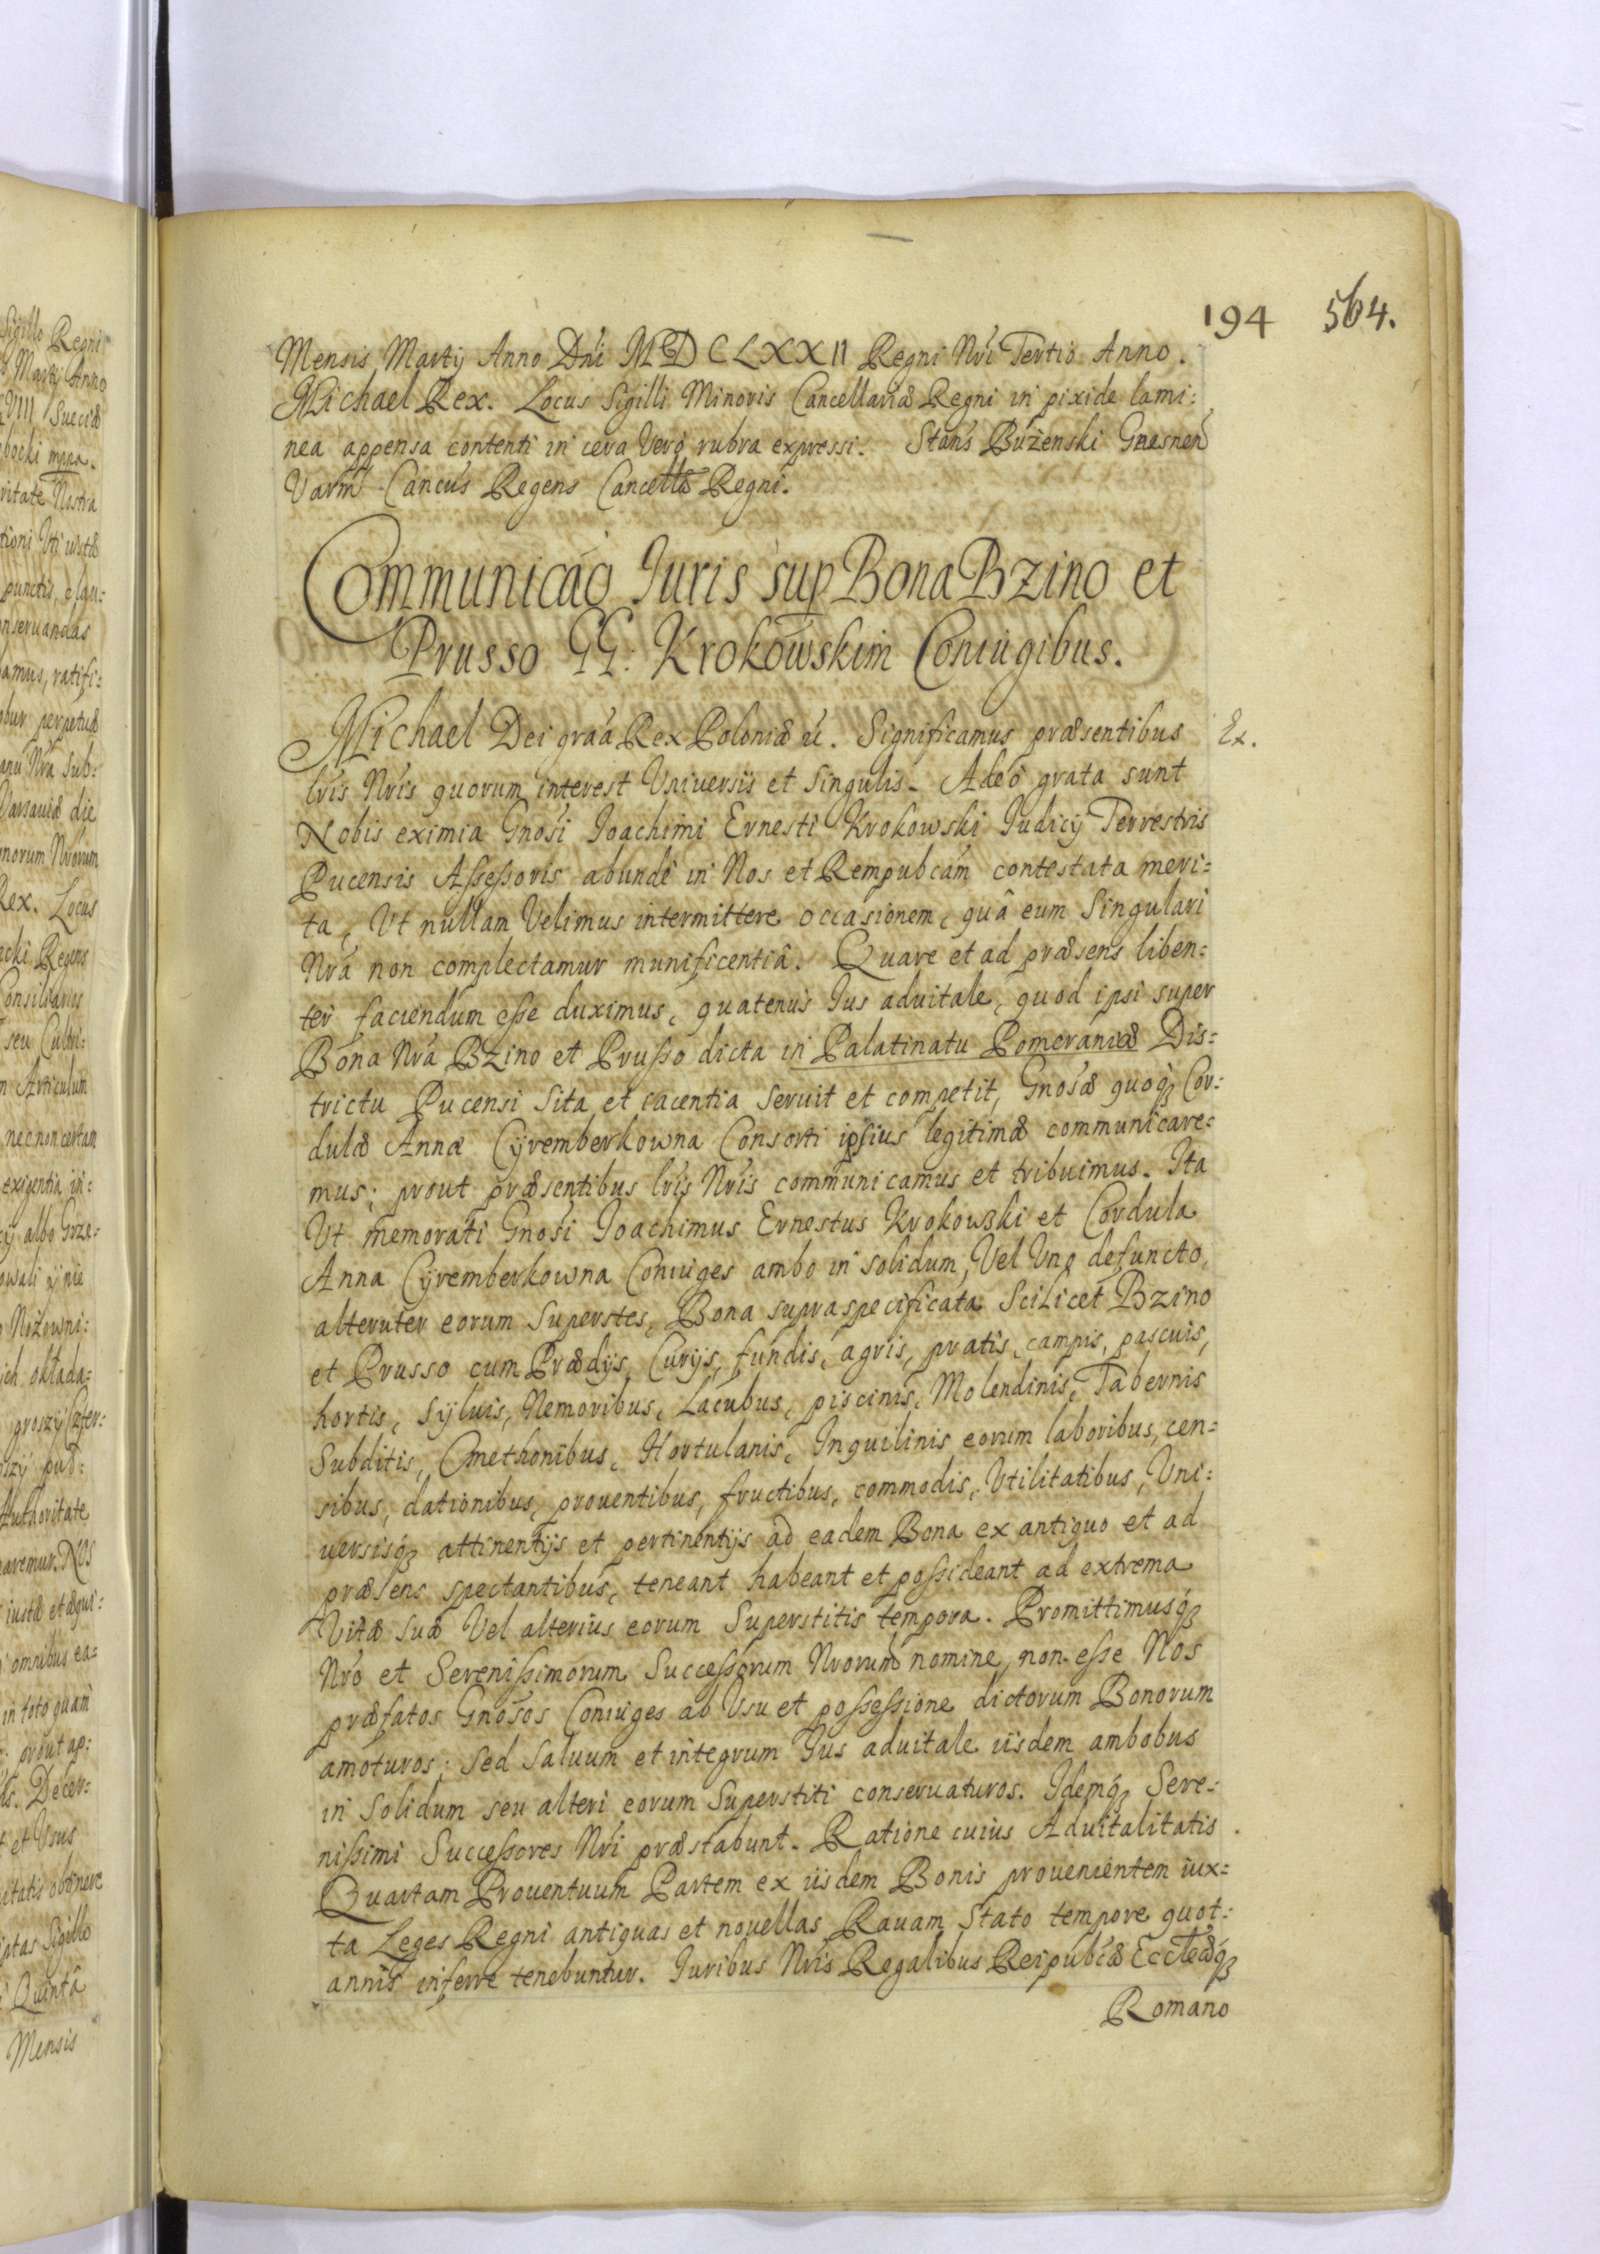 194 564.
Mensis Martij Anno Dni MDCLXXII Regni Nri Tertio Anno.
Michael Rex. Locus Sigilli Minoris Cancellariæ Regni in pixide lami:
nea appensa contenti in cera Verò rubra expressi. Stans Bużenski Gnesnen
Varm Cancus Regens Cancellæ Regni.
Communicão Iuris sup Bona Bzino et
Prusso GG: Krokowskim Coniugibus.
Michael Dei graâ Rex Poloniæ &. Significamus præsentibus Ex.
lris Nris quorum interest Vniuersis et Singulis. Adeò grata sunt
Nobis eximia Gnosi Ioachimi Ernesti Krokowski Iudicij Terrestris
Pucensis Assessoris abundè in Nos et Rempubcám contestata meri:
ta, Vt nullam Velimus intermittere occasionem, quâ eum Singulari
Nrâ non complectamur munificentiâ. Quare et ad præsens liben:
ter faciendum esse duximus, quatenus Ius aduitale, quod ipsi super
Bona Nra Bzino et Prusso dicta in Palatinatu Pomeraniæ Dis:
trictu Pucensi Sita et iacentia Seruit et competit, Gnosæ quoq₃ Cor:
dulæ Annæ Cyremberkowna Consorti ipsius legitimæ communicare:
mus; prout præsentibus lris Nris communicamus et tribuimus. Ita
Vt memorati Gnosi Ioachimus Ernestus Krokowski et Cordula
Anna Cyremberkowna Coniuges ambo in solidum, Vel Vno defuncto
alteruter eorum Superstes, Bona supraspecificata Scilicet Bzino
et Prusso cum Prædijs, Curijs, fundis, agris, pratis, campis, pascuis,
hortis, Syluis, Nemoribus, Lacubus, piscinis, Molendinis, Tabernis
Subditis, Cmethonibus, Hortulanis, Inquilinis eorum laboribus, cen:
sibus, dationibus, prouentibus, fructibus, commodis, Vtilitatibus, Vni:
uersisq₃ attinentijs et pertinentijs ad eadem Bona ex antiquo et ad
præsens spectantibus, teneant habeant et possideant ad extrema
Vitæ suæ Vel alterius eorum Superstitis tempora. Promittimusq₃
Nro et Serenissimorum Successorum Nrorum nomine, non esse Nos
præfatos Gnosos Coniuges ab Vsu et possessione dictorum Bonorum
amoturos; Sed Saluum et integrum Ius aduitale iisdem ambobus
in Solidum seu alteri eorum Superstiti conseruaturos. Idemq₃ Sere:
nissimi Successores Nri præstabunt. Ratione cuius Aduitalitatis
Quartam Prouentuum Partem ex iisdem Bonis prouenientem iux:
ta Leges Regni antiquas et nouellas Rauam Stato tempore quot:
annis inferre tenebuntur. Iuribus Nris Regalibus Reipubcæ Ecclæq₃
Romano